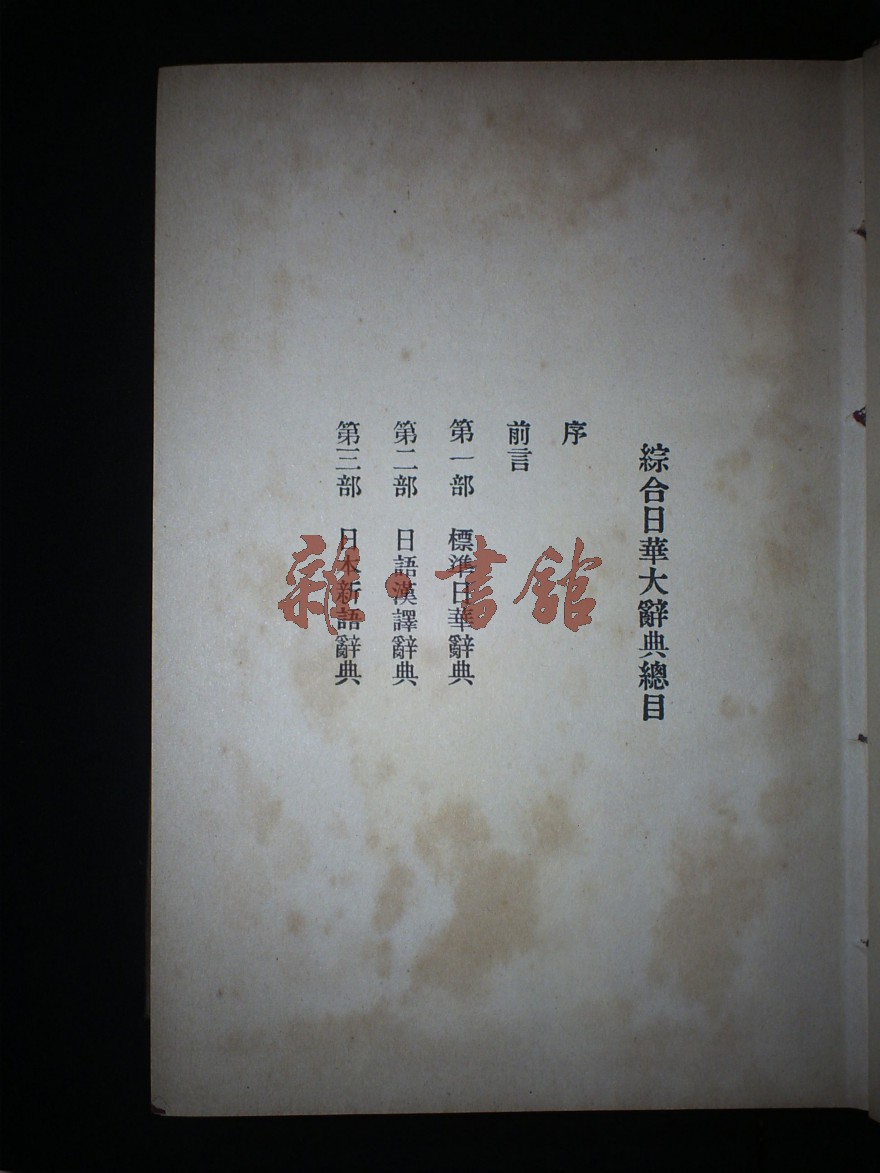 綜合日華大辭典總目
序
前言
第一部 標準日華辭典
第二部 日語漢譯辭典
第三部 日本新語辭典
雜·書舘